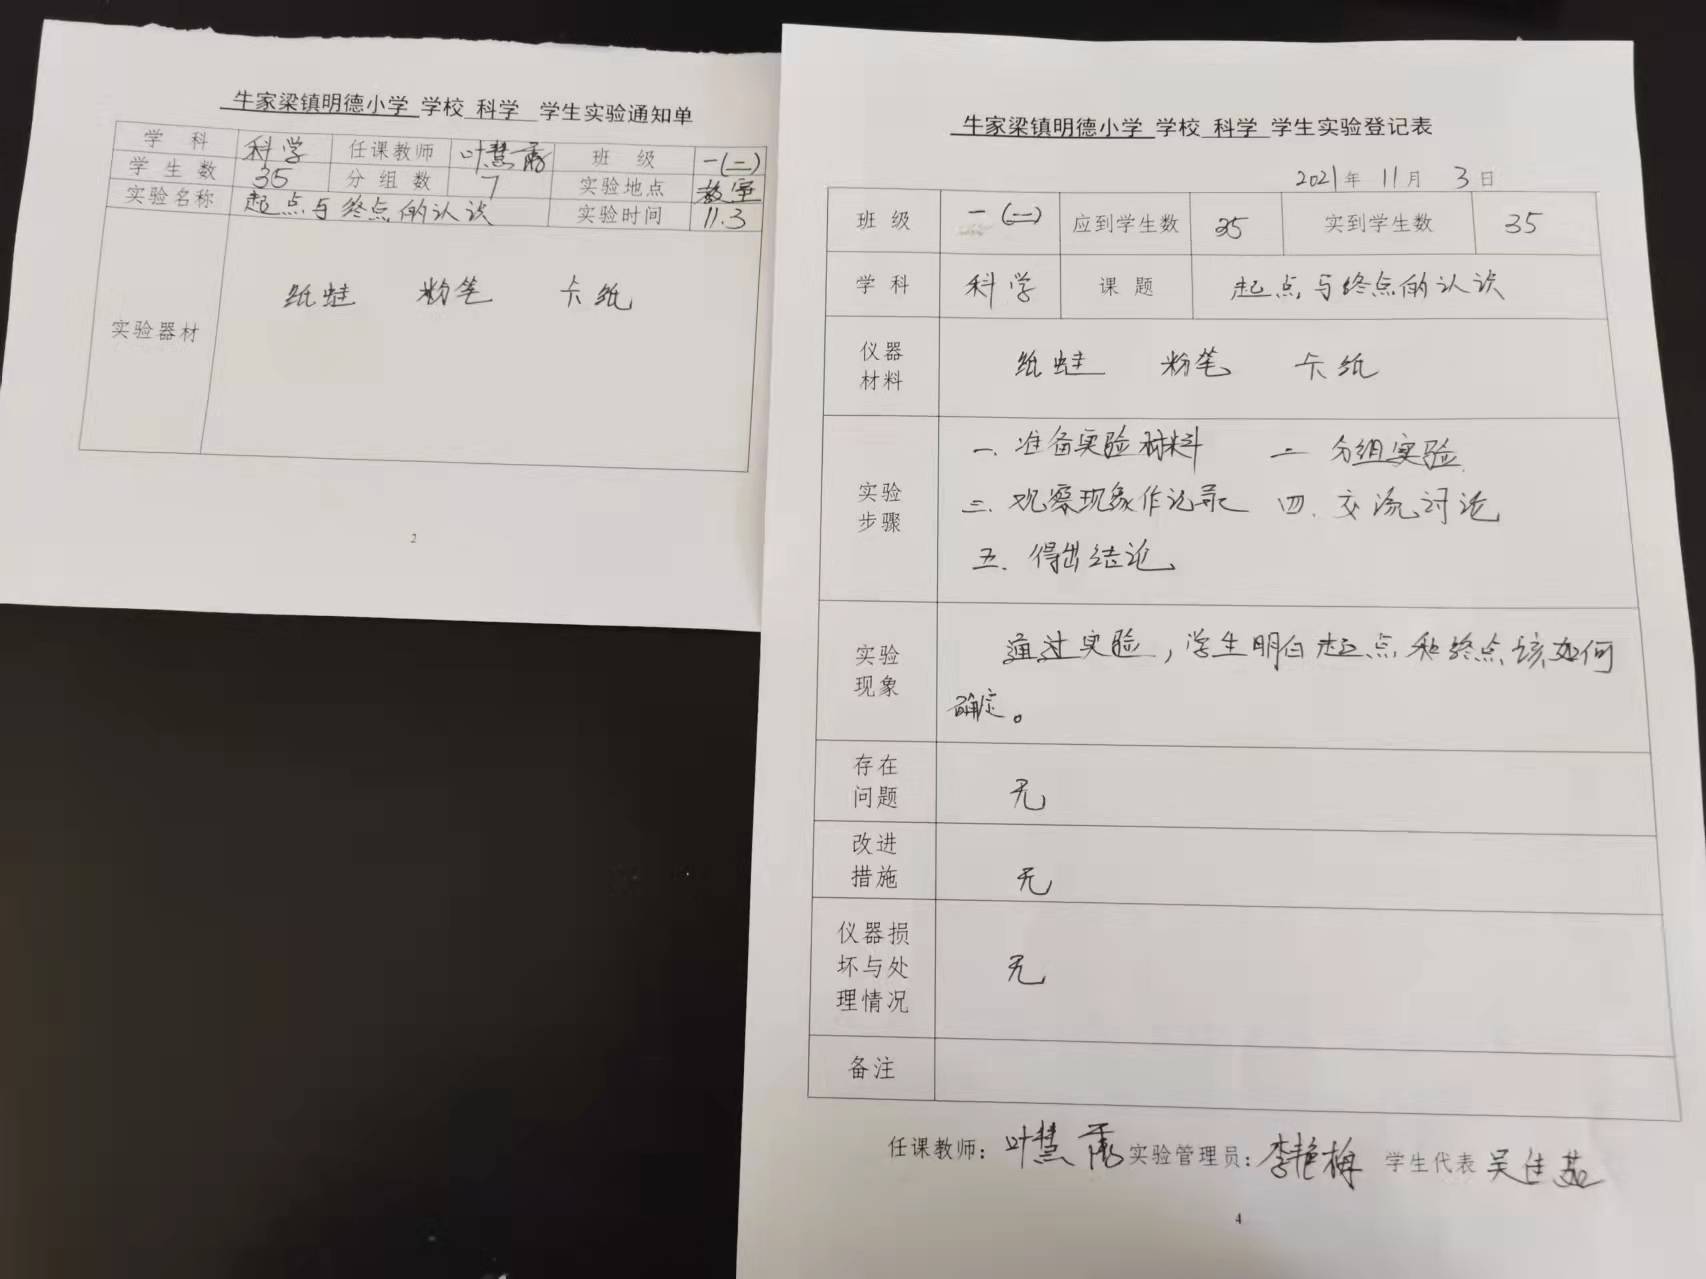 牛家梁镇明德小学 学校 科学 学生实验通知单
学 科 科学 任课教师 叶慧 班 级 一(二)
学 生 数 35 分 组 数 7 实验地点 教室
实验名称 起点与终点的认识 实验时间 11.3
实验器材 纸蛙 粉笔 卡纸
2
牛家梁镇明德小学 学校 科学 学生实验登记表
2021年 11月 3日
班 级 一(二) 应到学生数 35 实到学生数 35
学 科 科学 课 题 起点与终点的认识
仪器
材料
纸蛙 粉笔 卡纸
实验
步骤
一、准备实验材料 二 分组实验
三、观察现象作记录 四、交流讨论
五、得出结论
实验
现象
通过实验,学生明白起点和终点该如何
确定。
存在
问题
无
改进
措施
无
仪器损
坏与处
理情况
无
备注
任课教师: 叶慧 实验管理员: 李艳梅 学生代表 吴佳茹
4